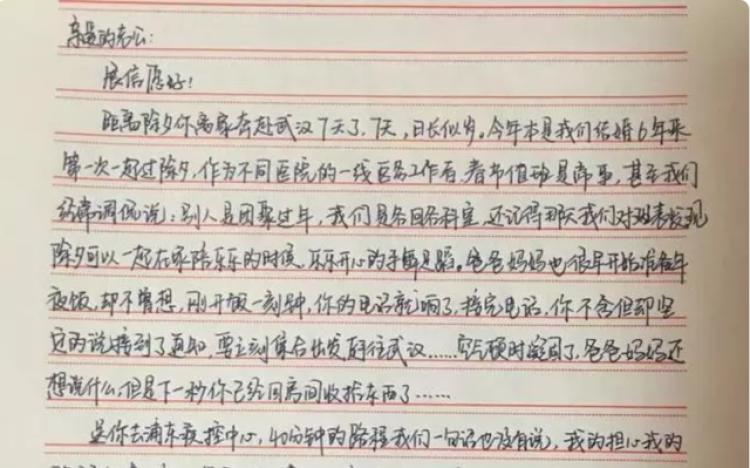 亲爱的老公：
展信愿好！
距离除夕你离家奔赴武汉7天了，7天，日长似岁。今年本是我们结婚6年来
第一次一起过除夕，作为不同医院的一线医务工作者，春节值班是常事，甚至我们
经常调侃说：别人是团聚过年，我们是各回各科室，还记得那天我们对班表发现
除夕可以一起在家陪乐乐的时候，乐乐开心的手舞足蹈。爸爸妈妈也很早开始准备年
夜饭，却不曾想，刚开饭一刻钟，你的电话就响了，接完电话，你不舍但却坚
定的说接到了通知，要立刻集合出发前往武汉……空气顿时凝固了，爸爸妈妈还
想说什么，但是下一秒你已经回房间收拾东西了……
送你去浦东疾控中心，40分钟的路程我们一句话也没有说，我的担心我的